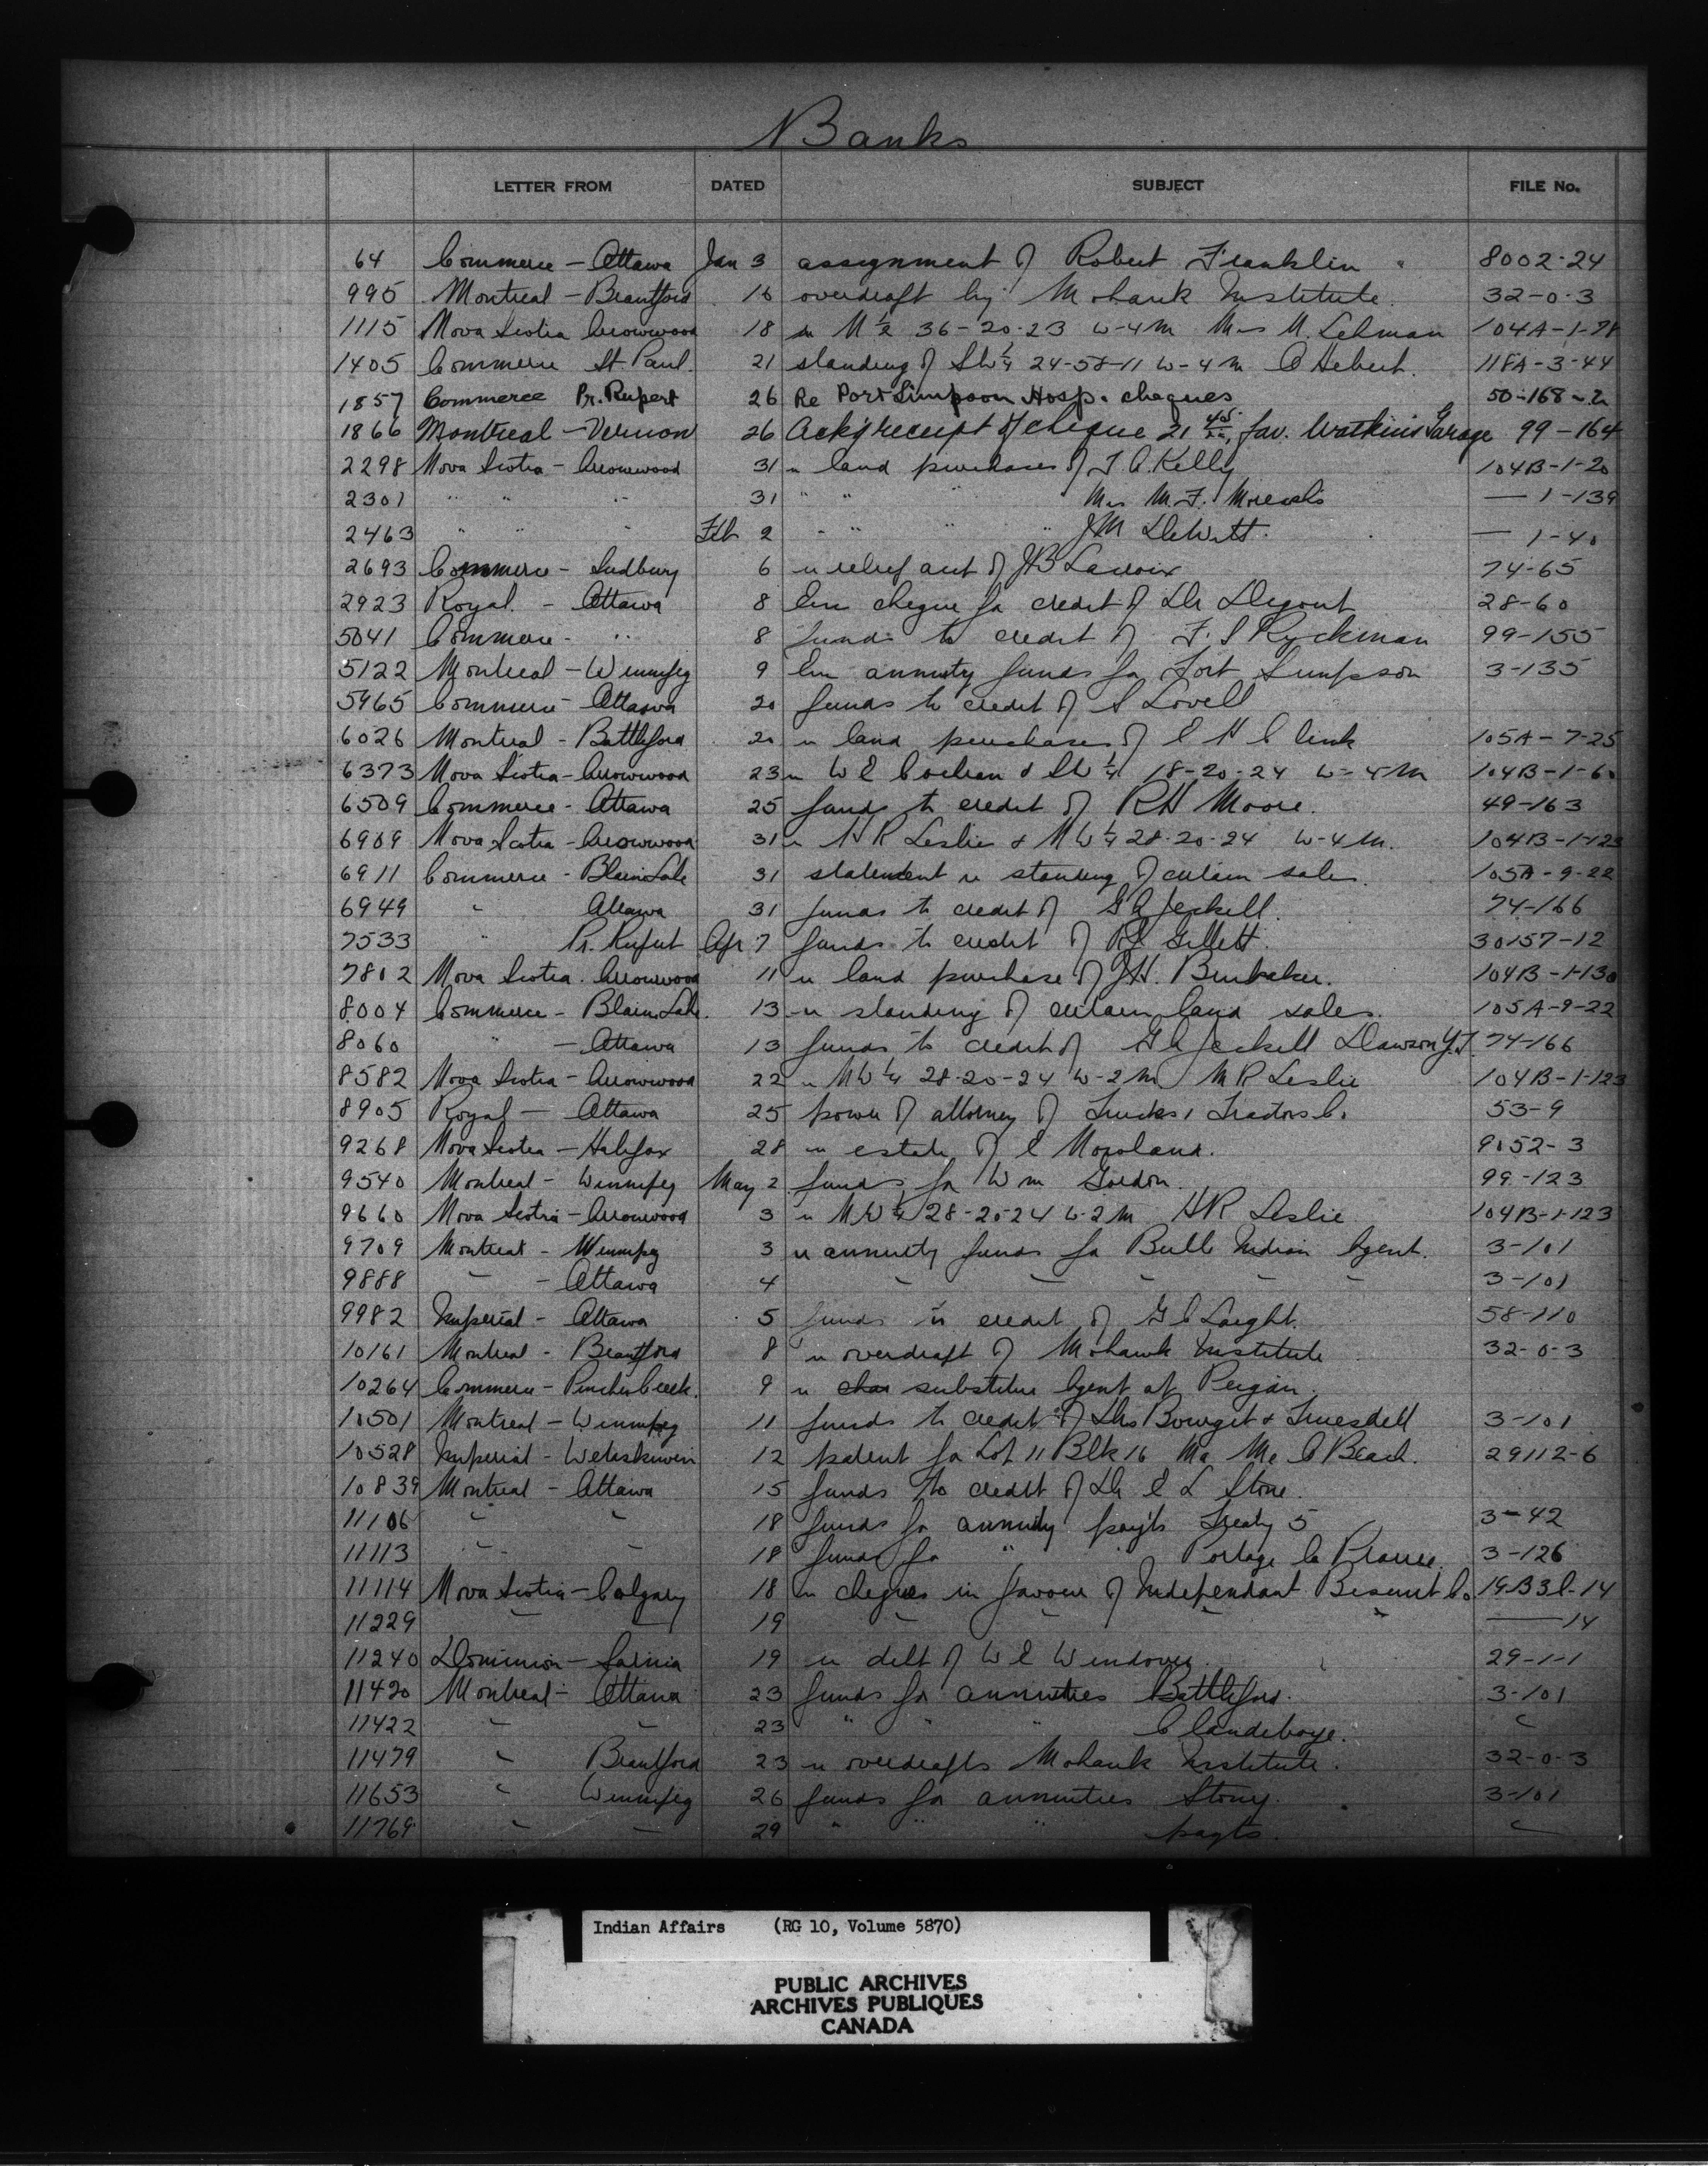 Banks
LETTER FROM DATED SUBJECT FILE No.
64 Commerce - Ottawa Jan 3 assignment of Robert Franklin " 8002-24
995 Montreal - Brantford 16 overdraft by Mohawk Institute. 32-0-3
1115 Nova Scotia Arrowwood 18 re N ½ 36-20-23 W-4M Mrs M. Lehman 104A-1-78
1405 Commerce St. Paul. 21 standing of SW¼ 24-58-11 W-4M O Hebert. 118A-3-44
1857 Commerce Pr. Rupert 26 Re Port Simpson Hosp. cheques 50-168-2
1866 Montreal - Vernon 26 Ackg receipt of cheque 21 45/xx, fav. Watkins Garage 99-164
2298 Nova Scotia - Arrowwood 31 re land purchases of J A Kelly 104B-1-20
2301 " " " 31 " " " Mrs M. F. — 1-139
2463 " " " Feb 2 " " " " J M DeWitt. — 1-40
2693 Commerce - Sudbury 6 re relief acct of J B Lacroix 74-65
2923 Royal - Ottawa 8 Enc cheque for credit of Dr 28-60
5041 Commerce - " 8 funds to credit of F. S Ryckman 99-155
5122 Montreal - Winnipeg 9 Enc annuity funds for Fort Simpson 3-135
5965 Commerce - Ottawa 20 funds to credit of S Lovell
6026 Montreal - Battleford 20 re land purchases of E H Clink 105A-7-25
6373 Nova Scotia - Arrowwood 23 re W E Cochran & SW¼ 18-20-24 W-4M 104B-1-60
6509 Commerce - Ottawa 25 funds to credit of R H Moore. 49-163
6909 Nova Scotia - Arrowwood 31 re H R Leslie & NW¼ 28-20-24 W-4M. 104B-1-123
6911 Commerce - Blaine Lake 31 statement re standing of certain sales. 105A-9-22
6949 " Ottawa 31 funds to credit of G A Jeckell. 74-166
7533 " Pr. Rupert Apr 7 funds to credit of Gillett. 30157-12
7802 Nova Scotia - Arrowwood 11 re land purchase of J H. Brubaker. 104B-1-130
8004 Commerce - Blaine Lake. 13 re standing of certain land sales. 105A-9-22
8060 " - Ottawa 13 funds to credit of G A Jeckell Dawson Y.T. 74-166
8582 Nova Scotia - Arrowwood 22 re NW¼ 28-20-24 W-2M M R Leslie 104B-1-123
8905 Royal - Ottawa 25 power of attorney of Trucks & Tractors Co. 53-9
9268 Nova Scotia - Halifax 28 re estate of E Moreland. 9052-3
9540 Montreal - Winnipeg May 2 funds for Wm Gordon. 99-123
9660 Nova Scotia - Arrowwood 3 re NW¼ 28-20-24 W-2M HR Leslie 104B-1-123
9709 Montreal - Winnipeg 3 re annuity funds for Bull Indian Agent. 3-101
9888 " - Ottawa 4 " " " " " 3-101
9982 Imperial - Ottawa 5 funds to credit of G C Laight. 58-110
10161 Montreal - Brantford 8 re overdraft of Mohawk Institute 32-0-3
10264 Commerce - Pincher Creek. 9 re substitute Agent at Peigan.
10501 Montreal - Winnipeg 11 funds to credit of Drs Bourget & Truesdell 3-101
10528 Imperial - Wetaskiwin 12 patent for Lot 11 Blk 16 Ma Me O Beach. 29112-6
10839 Montreal - Ottawa 15 funds to credit of Dr E L Stone.
11106 " " 18 funds for annuity payts Treaty 5 3-42
11113 " " 18 funds for " " Portage la Prairie. 3-126
11114 Nova Scotia - Calgary 18 re cheques in favour of Independant Biscuit Co. 19B3C-14
11229 " " 19 " " " " — 14
11240 Dominion - Sarnia 19 re debt of W E Windover. 29-1-1
11420 Montreal - Ottawa 23 funds for annuities Battleford. 3-101
11422 " " 23 " " " Clandeboye. "
11479 " Brantford 23 re overdrafts Mohawk Institute. 32-0-3
11653 " Winnipeg 26 funds for annuities Stony. 3-101
11769 " " 29 " " " payts. "
Indian Affairs (RG 10, Volume 5870)
PUBLIC ARCHIVES
ARCHIVES PUBLIQUES
CANADA